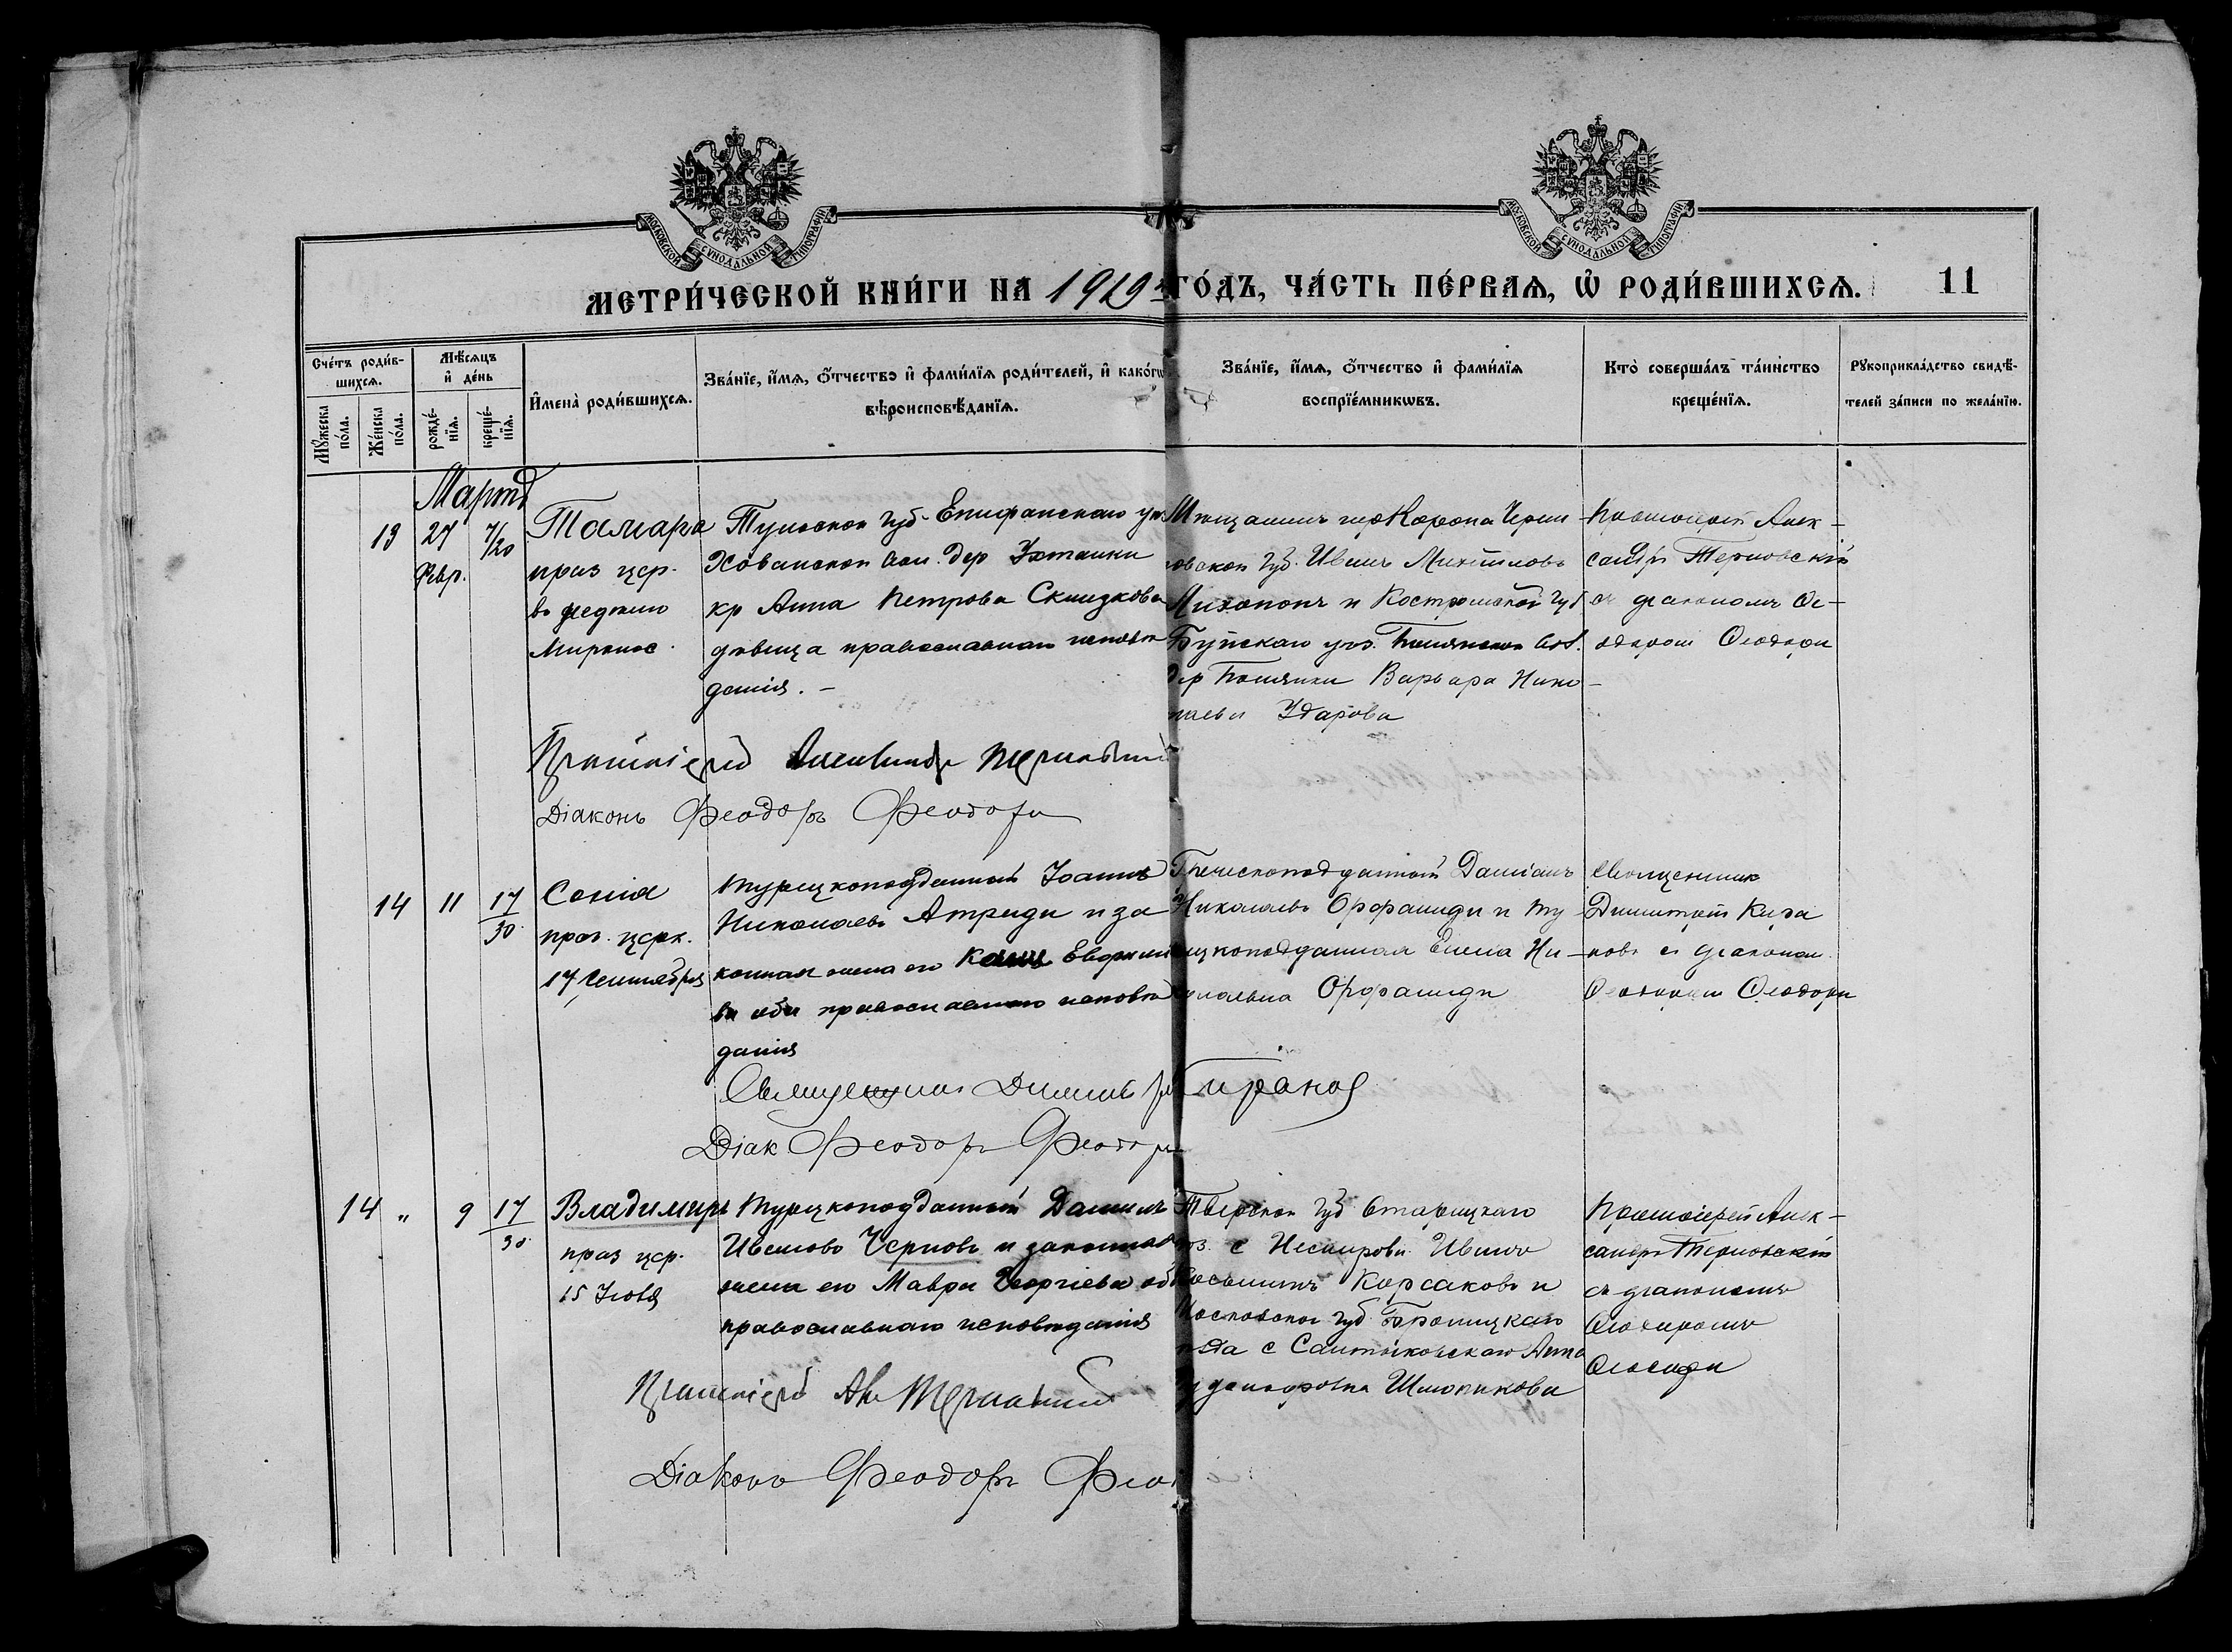 МОСКОВСКОЙ СУНОДАЛЬНОЙ ТИПОГРАФІИ
МОСКОВСКОЙ СУНОДАЛЬНОЙ ТИПОГРАФІИ
МЕТРИ́ЧЕСКОЙ КНИ́ГИ НА 1919 ГО́ДЪ, ЧА́СТЬ ПЕ́РВАЯ, Ѡ РОДИ́ВШИХСЯ. 11
Сче́тъ роди́в-
шихся.
Мꙋ́жеска по́ла.
Же́нска по́ла.
Мѣ́сяцъ
и де́нь
рожде́-
нїя.
креще́-
нїя.
Имена̀ роди́вшихся.
Зва́нїе, и́мя, о́тчество и фами́лїя роди́телей, и како́гѡ
вѣроисповѣ́данїя.
Зва́нїе, и́мя, о́тчество и фами́лїя
воспрїе́мникѡвъ.
Кто̀ соверша́лъ та́инство
креще́нїя.
Рꙋкоприкла́дство свидѣ́-
телей за́писи по жела́нїю.
Мартъ
13 27 7/20
Февр.
Тамара
праз. цер.
в неделю
Мироно́с.
Тульской губ. Епифанскаго у
Хованской вол. дер
кр Анна Петрова
дѣвица православнаго исповѣ
данія. –
Мѣщанинъ гор Короча Черни
говской губ. Иванъ
и Костромской губ
Буйскаго уѣз. вол.
дер Варвара Нико-
лаева Ударова
Протоіерей Алек-
сандръ Терновскій
съ діакономъ Ѳе-
одоромъ Ѳеодори
Протоіерей Александръ Терновскій
Діаконъ Феодоръ Феодори
14 11 17/30
Софія
праз. церк.
17 Сентября
Турецкоподданный Іоаннъ
Николаевъ Атриди и за
конная жена его Евфими
ва оба православнаго исповѣ
данія
Греческоподданный Даміанъ
Николаевъ Орфаниди и ту
рецкоподданная Елена Ни-
колаевна Орфаниди
Священникъ
Димитрій Кира
новъ съ діакономъ
Ѳеодоромъ Ѳеодори
Священникъ Димитрій Кирановъ
Діак Феодоръ Феодори
14 " 9 17/30
Владимиръ
праз цер.
15 Іюля
Турецкоподданный Даніилъ
Ивановъ Черновъ и законная
жена его Мавра Георгіева об
православнаго исповѣданія
Тверской губ Старицкаго
уѣз. с Иванъ
Корсаковъ и
Московской губ. Бронницкаго
уѣзда с Салтыковскаго Анна
Протоіерей Алек-
сандръ Терновскій
съ діакономъ
Ѳеодоромъ
Ѳеодори
Протоіерей Ал Терновскій
Діаконъ Феодоръ Фео